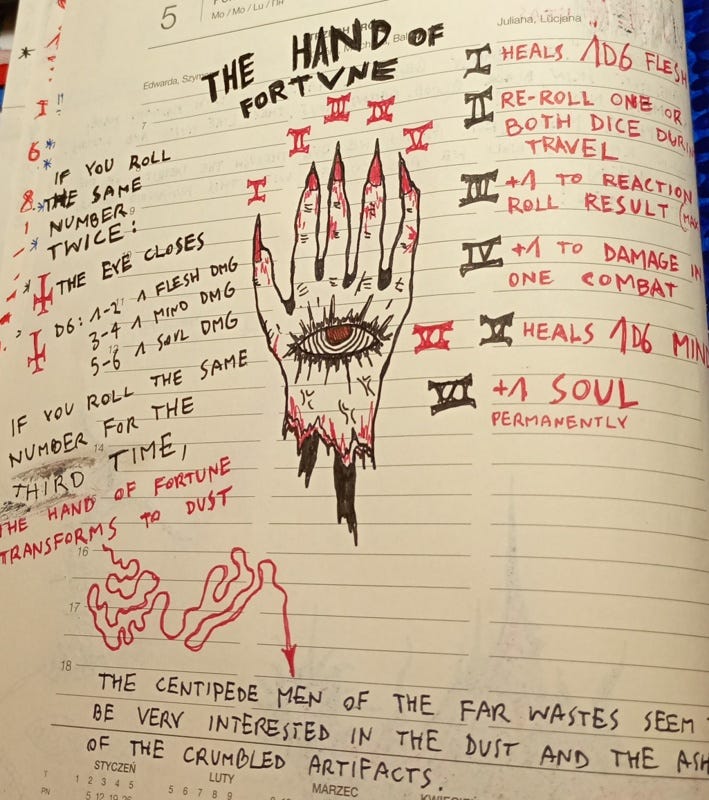 5
Mo / Mo / Lu / ПН
Juliana, Lucjana
Edwarda, Szym
THE HAND OF
FORTVNE
I HEALS 1D6 FLESH
II RE-ROLL ONE OR
BOTH DICE DURIN
TRAVEL
III +1 TO REACTION
ROLL RESULT (MAX
IV +1 TO DAMAGE IN
ONE COMBAT
V HEALS 1D6 MIND
VI +1 SOUL
PERMANENTLY
I
II
III
IV
V
VI
7
I
6
8
IF YOU ROLL
THE SAME
NUMBER
TWICE:
THE EYE CLOSES
D6: 1-2 1 FLESH DMG
3-4 1 MIND DMG
5-6 1 SOUL DMG
IF YOU ROLL THE SAME
NUMBER FOR THE
THIRD TIME,
THE HAND OF FORTUNE
TRANSFORMS TO DUST
14
16
17
18
THE CENTIPEDE MEN OF THE FAR WASTES SEEM
BE VERY INTERESTED IN THE DUST AND THE ASH
OF THE CRUMBLED ARTIFACTS.
STYCZEŃ
LUTY
MARZEC
T
1 2 3 4 5
5 6 7 8 9
PN
5 12 19 26